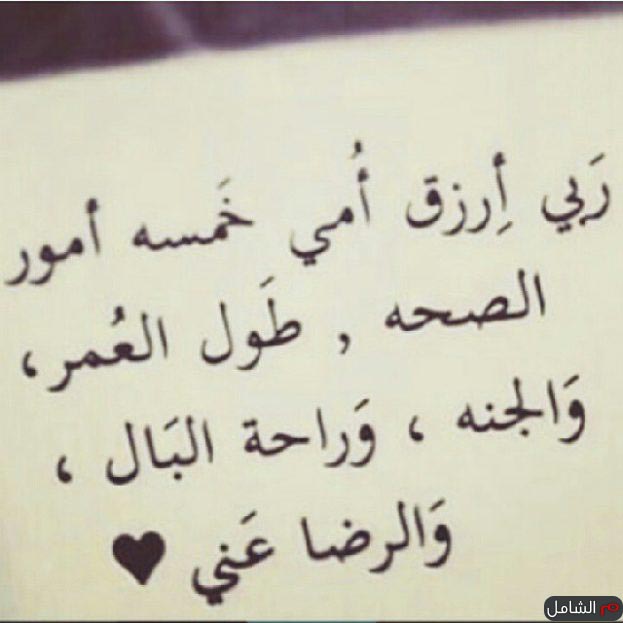 رَبي أِرزق أُمي خَمسه أمور
الصحه , طَول العُمر،
وَالجنه ، وَراحة البَال ،
وَالرضا عَني ♥
الشامل